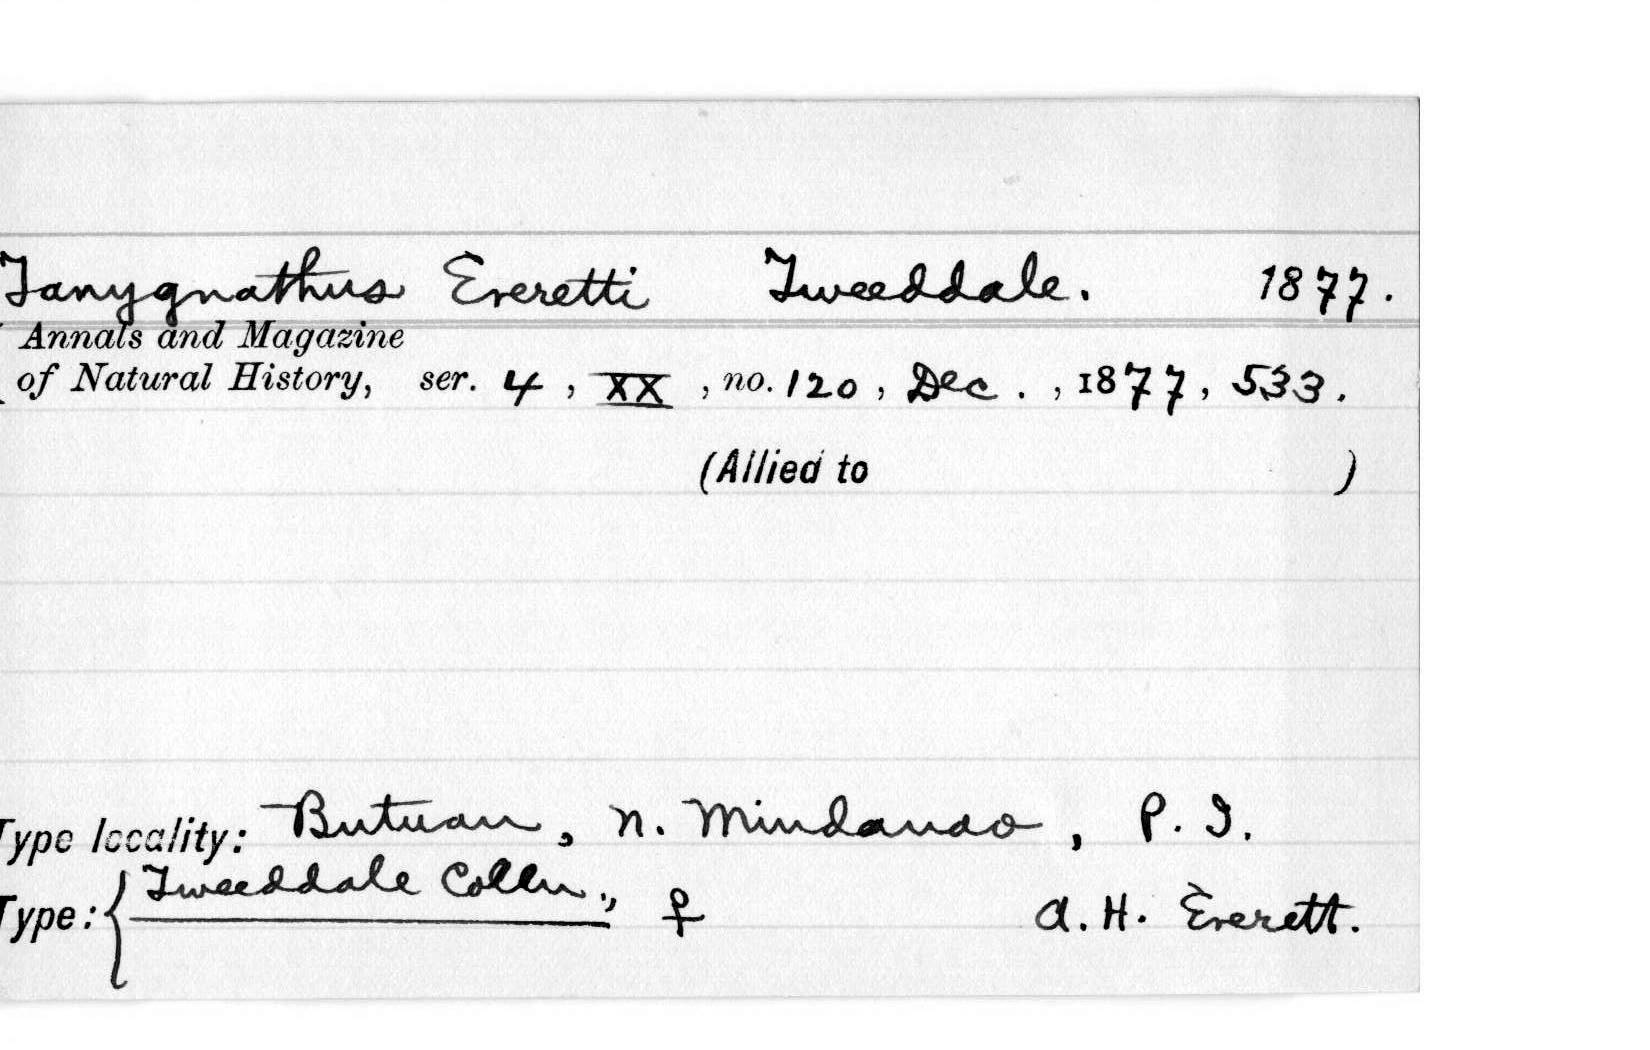 Tanygnathus Everetti Tweeddale. 1877.
Annals and Magazine
of Natural History, ser. 4, XX, no. 120, Dec. , 1877, 533.
(Allied to )
Type locality: Butuan, N. Mindanao, P. I.
Type: { Tweeddale Colln., ♀ A. H. Everett.